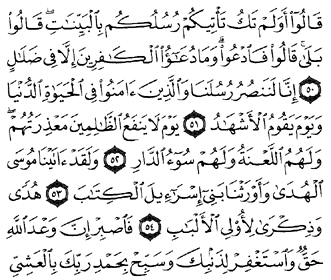 قَالُوٓا۟ أَوَلَمْ تَكُ تَأْتِيكُمْ رُسُلُكُم بِٱلْبَيِّنَٰتِ ۖ قَالُوا۟
بَلَىٰ ۚ قَالُوا۟ فَٱدْعُوا۟ ۗ وَمَا دُعَٰٓؤُا۟ ٱلْكَٰفِرِينَ إِلَّا فِى ضَلَٰلٍ
﴿٥٠﴾ إِنَّا لَنَنصُرُ رُسُلَنَا وَٱلَّذِينَ ءَامَنُوا۟ فِى ٱلْحَيَوٰةِ ٱلدُّنْيَا
وَيَوْمَ يَقُومُ ٱلْأَشْهَٰدُ ﴿٥١﴾ يَوْمَ لَا يَنفَعُ ٱلظَّٰلِمِينَ مَعْذِرَتُهُمْ ۖ
وَلَهُمُ ٱللَّعْنَةُ وَلَهُمْ سُوٓءُ ٱلدَّارِ ﴿٥٢﴾ وَلَقَدْ ءَاتَيْنَا مُوسَى
ٱلْهُدَىٰ وَأَوْرَثْنَا بَنِىٓ إِسْرَٰٓءِيلَ ٱلْكِتَٰبَ ﴿٥٣﴾ هُدًى
وَذِكْرَىٰ لِأُو۟لِى ٱلْأَلْبَٰبِ ﴿٥٤﴾ فَٱصْبِرْ إِنَّ وَعْدَ ٱللَّهِ
حَقٌّ وَٱسْتَغْفِرْ لِذَنۢبِكَ وَسَبِّحْ بِحَمْدِ رَبِّكَ بِٱلْعَشِىِّ